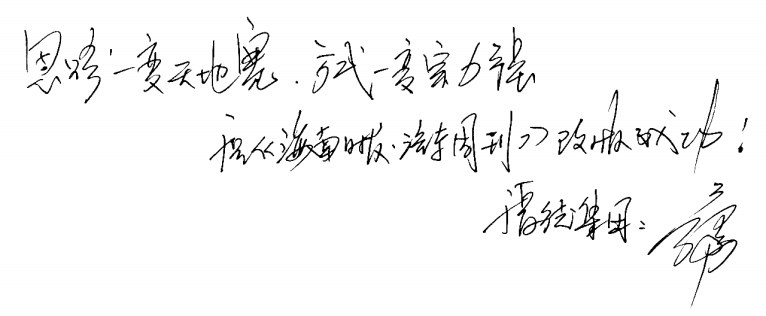 思路一变天地宽.方式一变实力强
祝《海南日报·汽车周刊》改版成功!
集团: